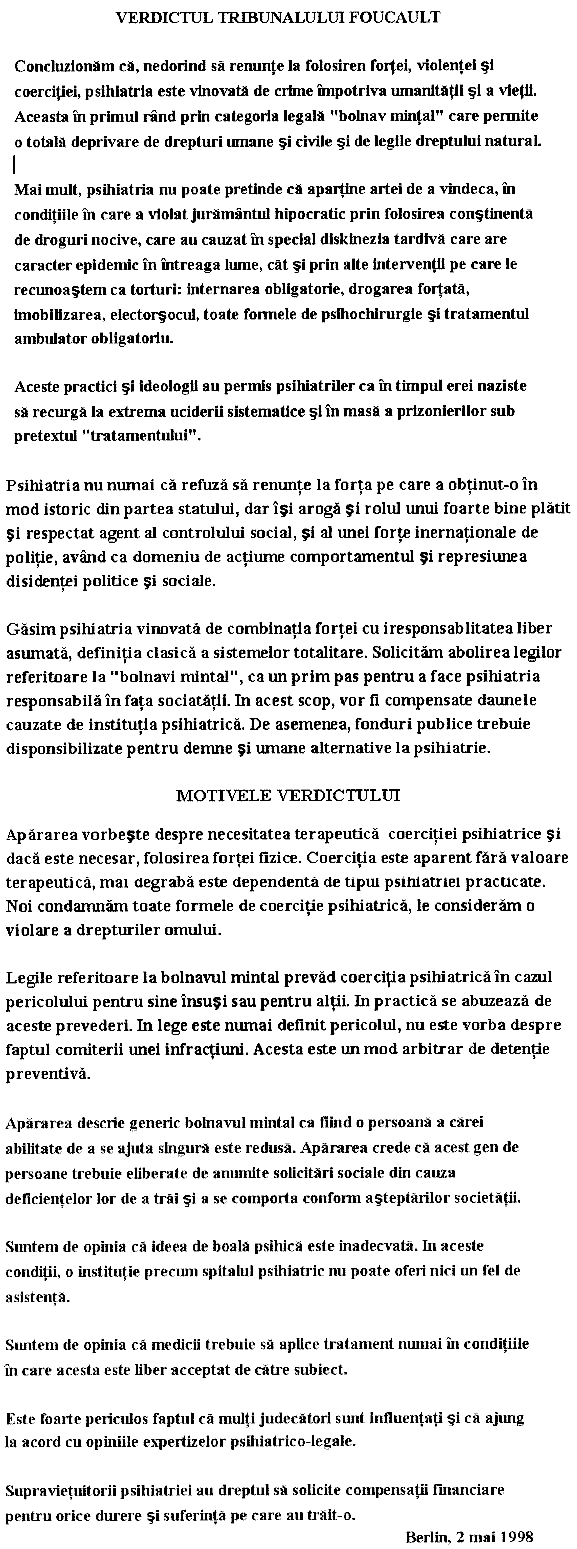 VERDICTUL TRIBUNALULUI FOUCAULT
Concluzionăm că, nedorind să renunțe la folosiren forței, violenței și
coerciției, psihiatria este vinovată de crime împotriva umanității și a vieții.
Aceasta în primul rând prin categoria legală "bolnav mintal" care permite
o totală deprivare de drepturi umane și civile și de legile dreptului natural.
Mai mult, psihiatria nu poate pretinde că aparține artei de a vindeca, în
condițiile în care a violat jurământul hipocratic prin folosirea conștinentă
de droguri nocive, care au cauzat în special diskinezia tardivă care are
caracter epidemic în întreaga lume, cât și prin alte intervenții pe care le
recunoaștem ca torturi: internarea obligatorie, drogarea forțată,
imobilizarea, electorșocul, toate formele de psihochirurgie și tratamentul
ambulator obligatoriu.
Aceste practici și ideologii au permis psihiatriler ca în timpul erei naziste
să recurgă la extrema uciderii sistematice și în masă a prizonierilor sub
pretextul "tratamentului".
Psihiatria nu numai că refuză să renunțe la forța pe care a obținut-o în
mod istoric din partea statului, dar își arogă și rolul unui foarte bine plătit
și respectat agent al controlului social, și al unei forțe inernaționale de
poliție, având ca domeniu de acțiume comportamentul și represiunea
disidenței politice și sociale.
Găsim psihiatria vinovată de combinația forței cu iresponsablitatea liber
asumată, definiția clasică a sistemelor totalitare. Solicităm abolirea legilor
referitoare la "bolnavi mintal", ca un prim pas pentru a face psihiatria
responsabilă în fața sociatății. In acest scop, vor fi compensate daunele
cauzate de instituția psihiatrică. De asemenea, fonduri publice trebuie
disponsibilizate pentru demne și umane alternative la psihiatrie.
MOTIVELE VERDICTULUI
Apărarea vorbește despre necesitatea terapeutică coerciției psihiatrice și
dacă este necesar, folosirea forței fizice. Coerciția este aparent fără valoare
terapeutică, mai degrabă este dependentă de tipul psihiatriei practicate.
Noi condamnăm toate formele de coerciție psihiatrică, le considerăm o
violare a drepturilor omului.
Legile referitoare la bolnavul mintal prevăd coerciția psihiatrică în cazul
pericolului pentru sine însuși sau pentru alții. In practică se abuzează de
aceste prevederi. In lege este numai definit pericolul, nu este vorba despre
faptul comiterii unei infracțiuni. Acesta este un mod arbitrar de detenție
preventivă.
Apărarea descrie generic bolnavul mintal ca fiind o persoană a cărei
abilitate de a se ajuta singură este redusă. Apărarea crede că acest gen de
persoane trebuie eliberate de anumite solicitări sociale din cauza
deficiențelor lor de a trăi și a se comporta conform așteptărilor societății.
Suntem de opinia că ideea de boală psihică este inadecvată. In aceste
condiții, o instituție precum spitalul psihiatric nu poate oferi nici un fel de
asistență.
Suntem de opinia că medicii trebuie să aplice tratament numai în condițiile
în care acesta este liber acceptat de către subiect.
Este foarte periculos faptul că mulți judecători sunt influențați și că ajung
la acord cu opiniile expertizelor psihiatrico-legale.
Supraviețuitorii psihiatriei au dreptul să solicite compensații financiare
pentru orice durere și suferință pe care au trăit-o.
Berlin, 2 mai 1998